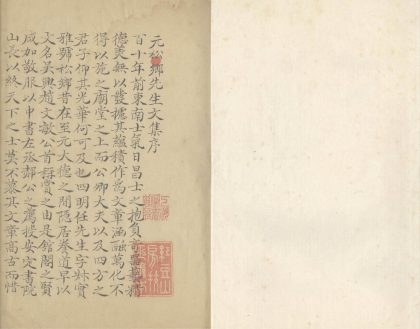 元松鄉先生文集序
百十年前東南士氣日昌士之抱負
德美無以發攄其蘊積作為文章涵融萬化不
得以施之廟堂之上而公卿大夫以及四方之
君子仰其光華何可及也四明任先生字叔實
雅號松鄉昔在至元大德之間隱居養道早以
文名吳興趙文敏公首稱賞之由是館閣之賢
咸加敬服以中書左丞郝公之薦授安定書院
山長以終天下之士莫不慕其文章高古而惜